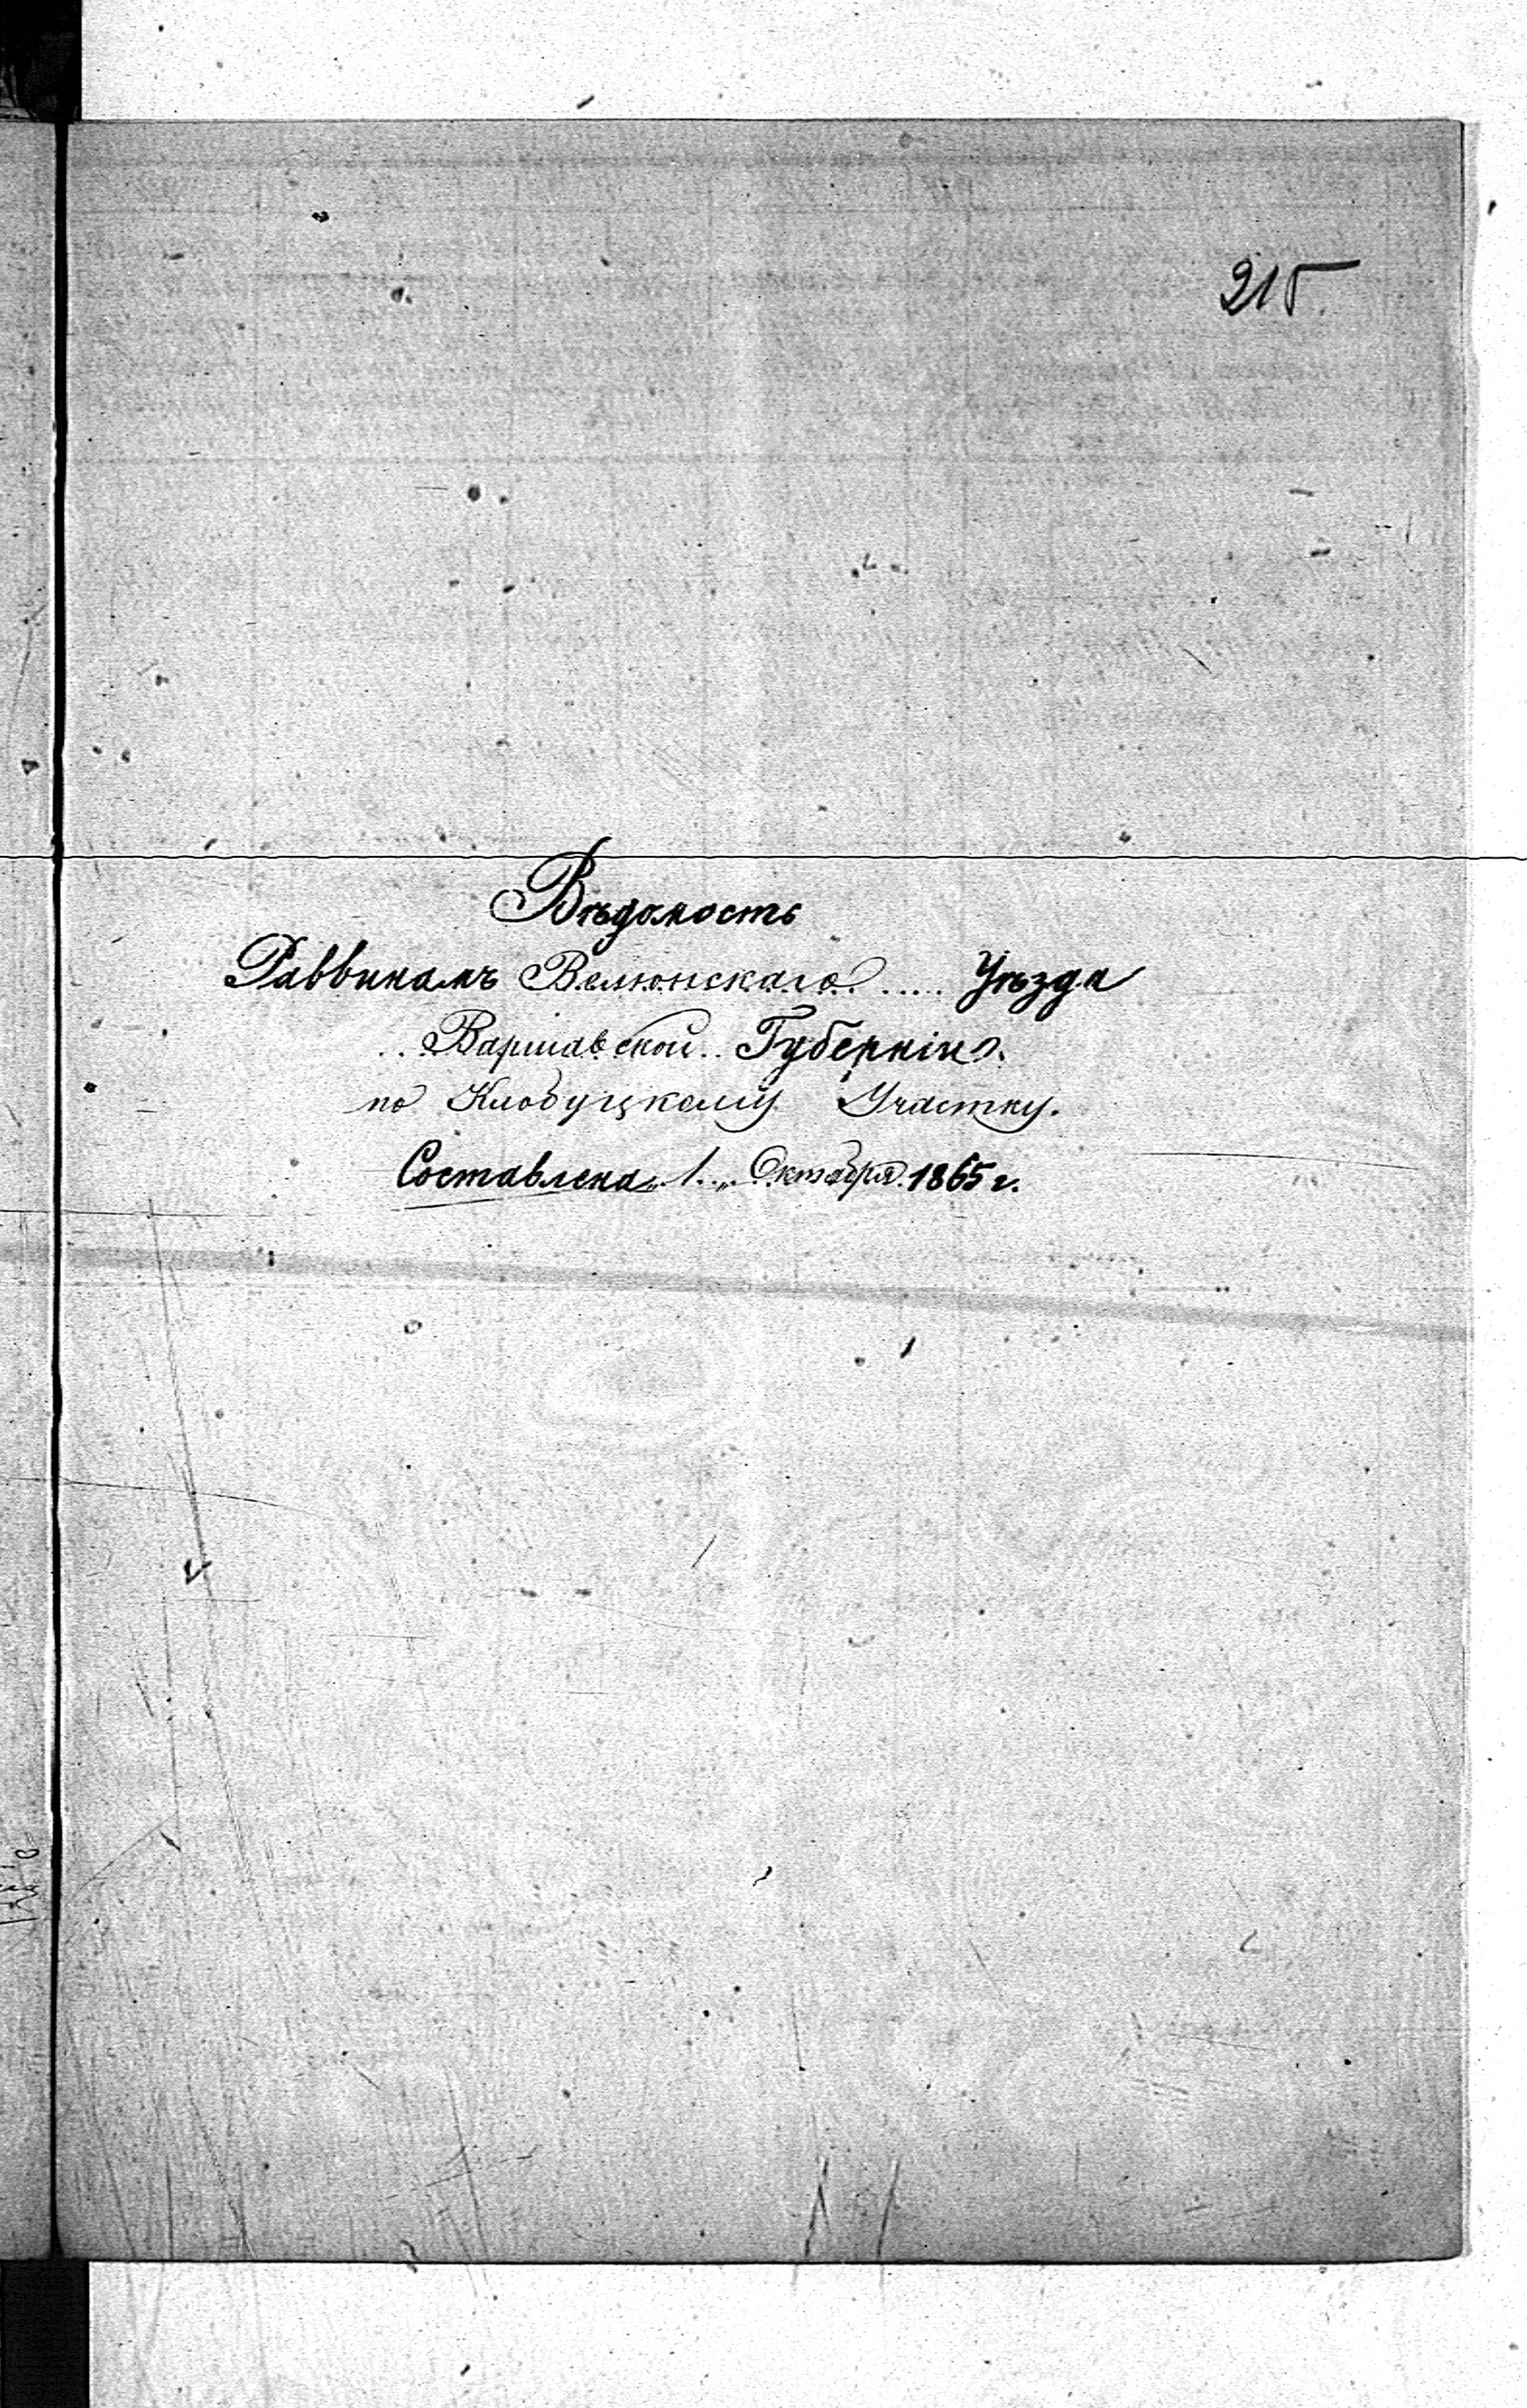 215.
Вѣдомость
Раввинамъ Велюнскаго ..... Уѣзда
.. Варшавской .. Губерніи.
по Клобуцкому Участку.
Составлена „ 1 „ Октября 1865 г.